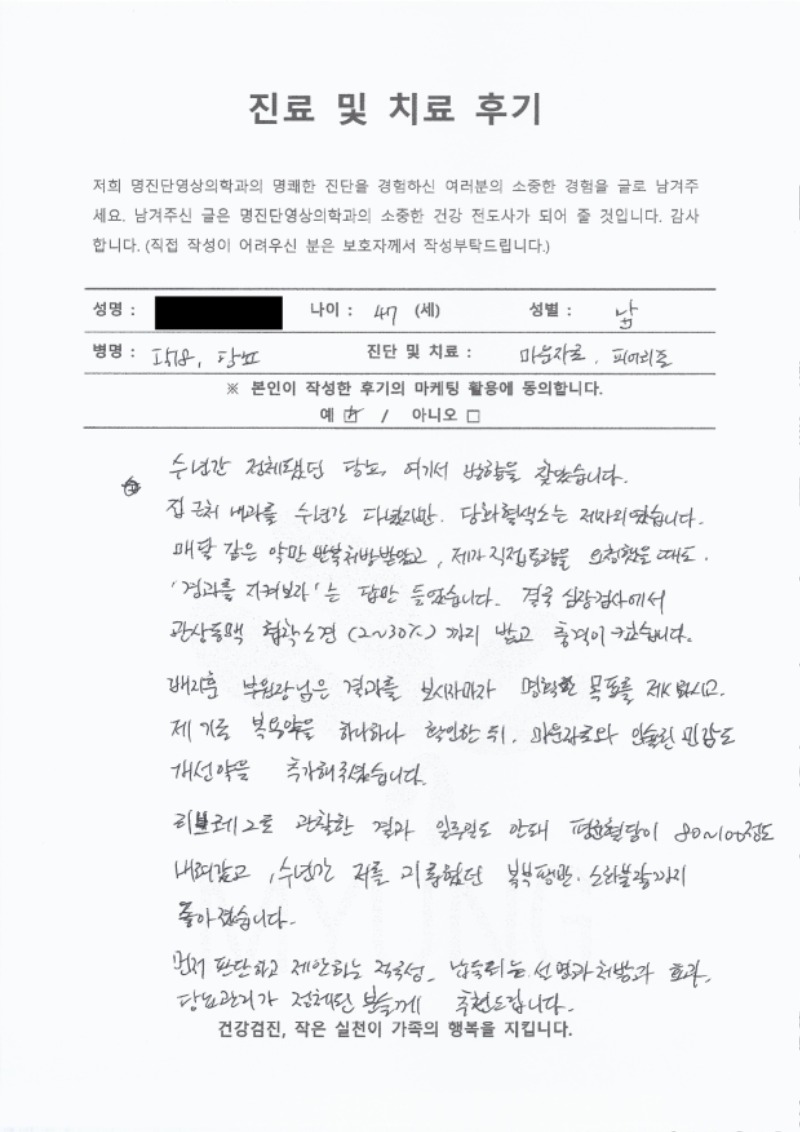 진료 및 치료 후기
저희 명진단영상의학과의 명쾌한 진단을 경험하신 여러분의 소중한 경험을 글로 남겨주
세요. 남겨주신 글은 명진단영상의학과의 소중한 건강 전도사가 되어 줄 것입니다. 감사
합니다. (직접 작성이 어려우신 분은 보호자께서 작성부탁드립니다.)
성명 : 나이 : 47 (세) 성별 : 남
병명 : 당뇨 진단 및 치료 : 마운자로, 피어리존
※ 본인이 작성한 후기의 마케팅 활용에 동의합니다.
예 ☑ / 아니오 □
수년간 정체됐던 당뇨, 여기서 방향을 찾았습니다.
집 근처 내과를 수년간 다녔지만, 당화혈색소는 제자리였습니다.
매달 같은 약만 반복처방받았고, 제가 직접 조합을 요청했을 때도.
'경과를 지켜보자'는 답만 들었습니다. 결국 심장검사에서
관상동맥 협착소견 (2~30%) 까지 받고 충격이 컸습니다.
배지훈 부원장님은 결과를 보시자마자 명확한 목표를 제시하시고.
제 기존 복용약을 하나하나 확인한 뒤, 마운자로와 인슐린 민감도
개선약을 추가해주셨습니다.
리브레2로 관찰한 결과 일주일도 안돼 평균혈당이 80~100정도
내려갔고, 수년간 저를 괴롭혔던 복부팽만, 소화불량까지
좋아졌습니다.
먼저 판단하고 제안하는 적극성, 납득되는 설명과 처방과 효과.
당뇨관리가 정체된 분들께 추천드립니다.
건강검진, 작은 실천이 가족의 행복을 지킵니다.
MYUNG